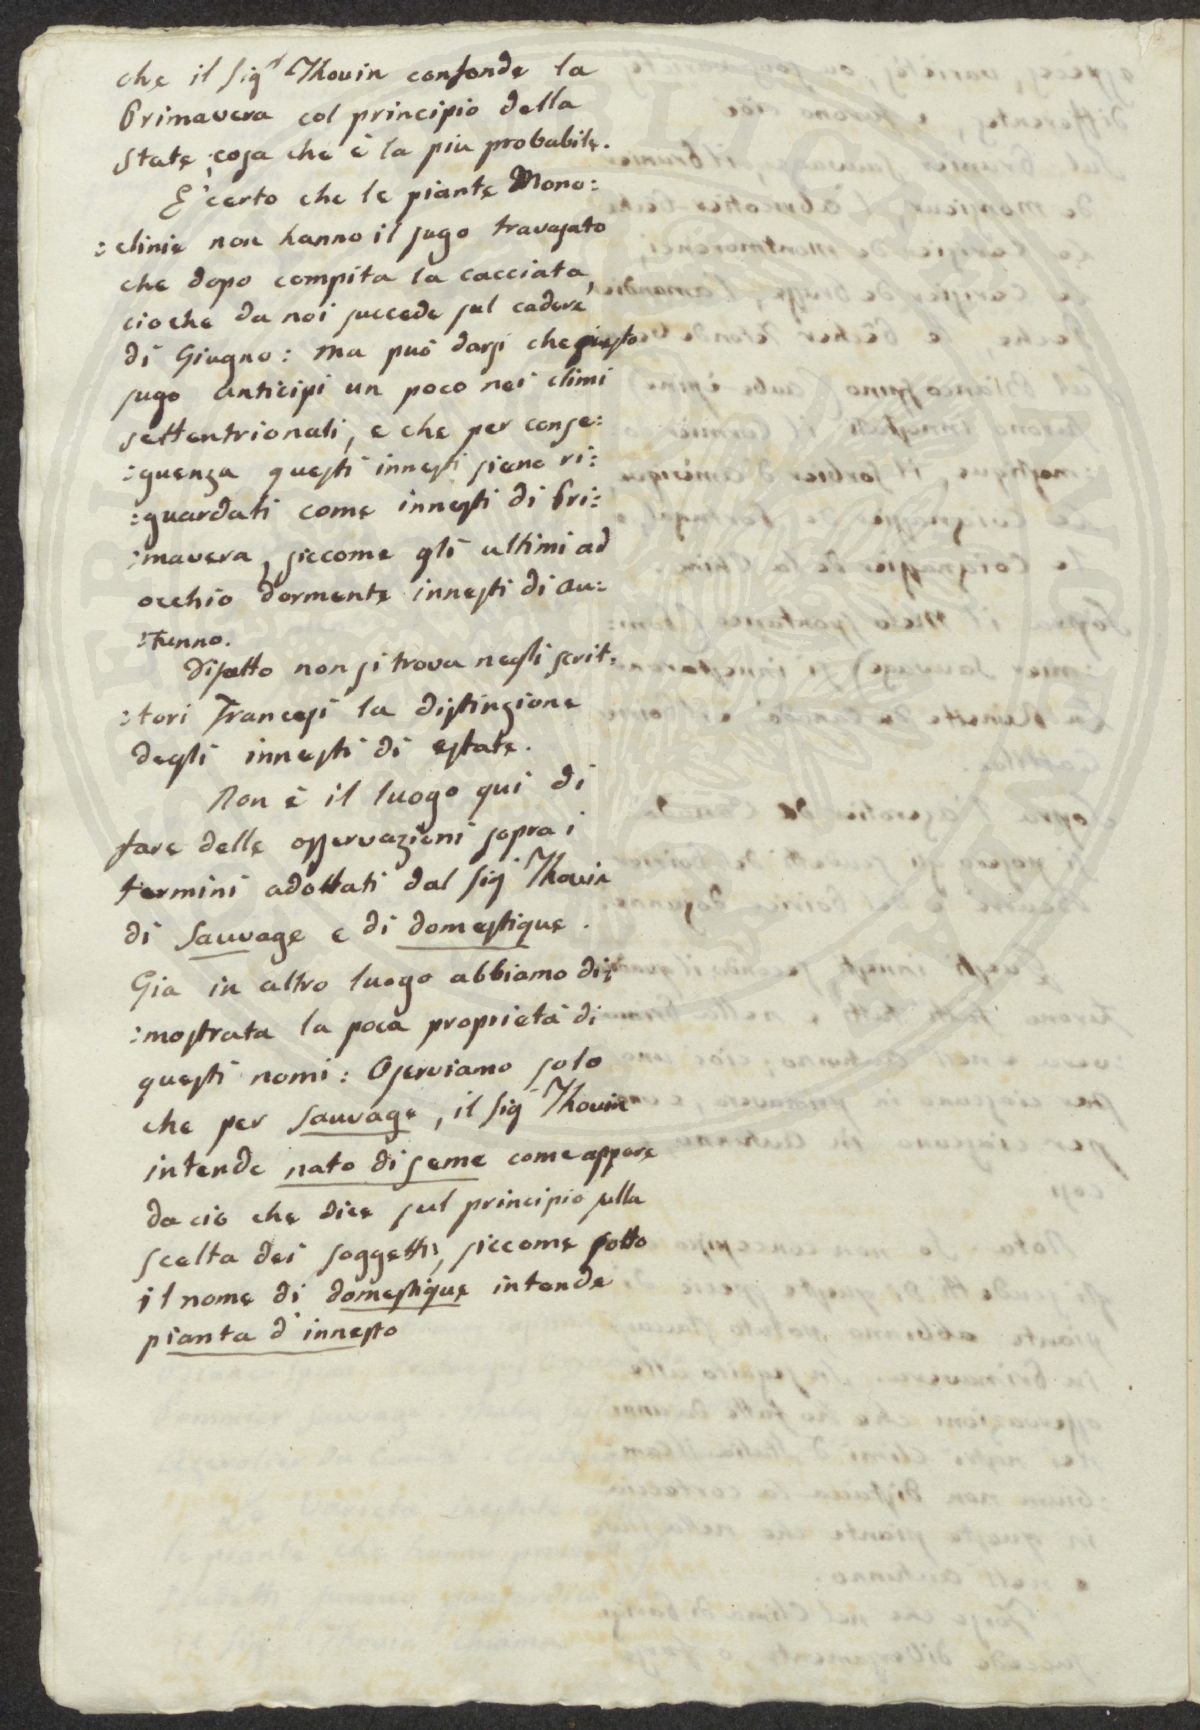 che il Sig.r Thouin confonde la
Primavera col principio della
State, cosa che è la piu probabile.
E' certo che le piante Mono:
:clinie non hanno il sugo travasato
che dopo compita la cacciata,
cioche da noi succede sul cadere
di Giugno: Ma può darsi che questo
sugo anticipi un poco nei climi
settentrionali, e che per conse:
:guenza questi innesti siano ri:
:guardati come innesti di Pri:
:mavera, siccome gli ultimi ad
occhio dormente innesti di Au:
:tunno.
Difatto non si trova negli scrit:
:tori Francesi la distinzione
degli innesti di estate.
Non è il luogo qui di
fare delle osservazioni sopra i
termini adottati dal Sig Thouin
di Sauvage e di domestique.
Gia in altro luogo abbiamo di:
:mostrata la poca proprietà di
questi nomi: Osserviamo solo
che per Sauvage, il Sig Thouin
intende nato di seme come appare
da ciò che dice sul principio sulla
scelta dei soggetti, siccome sotto
il nome di domestique intende
pianta d'innesto